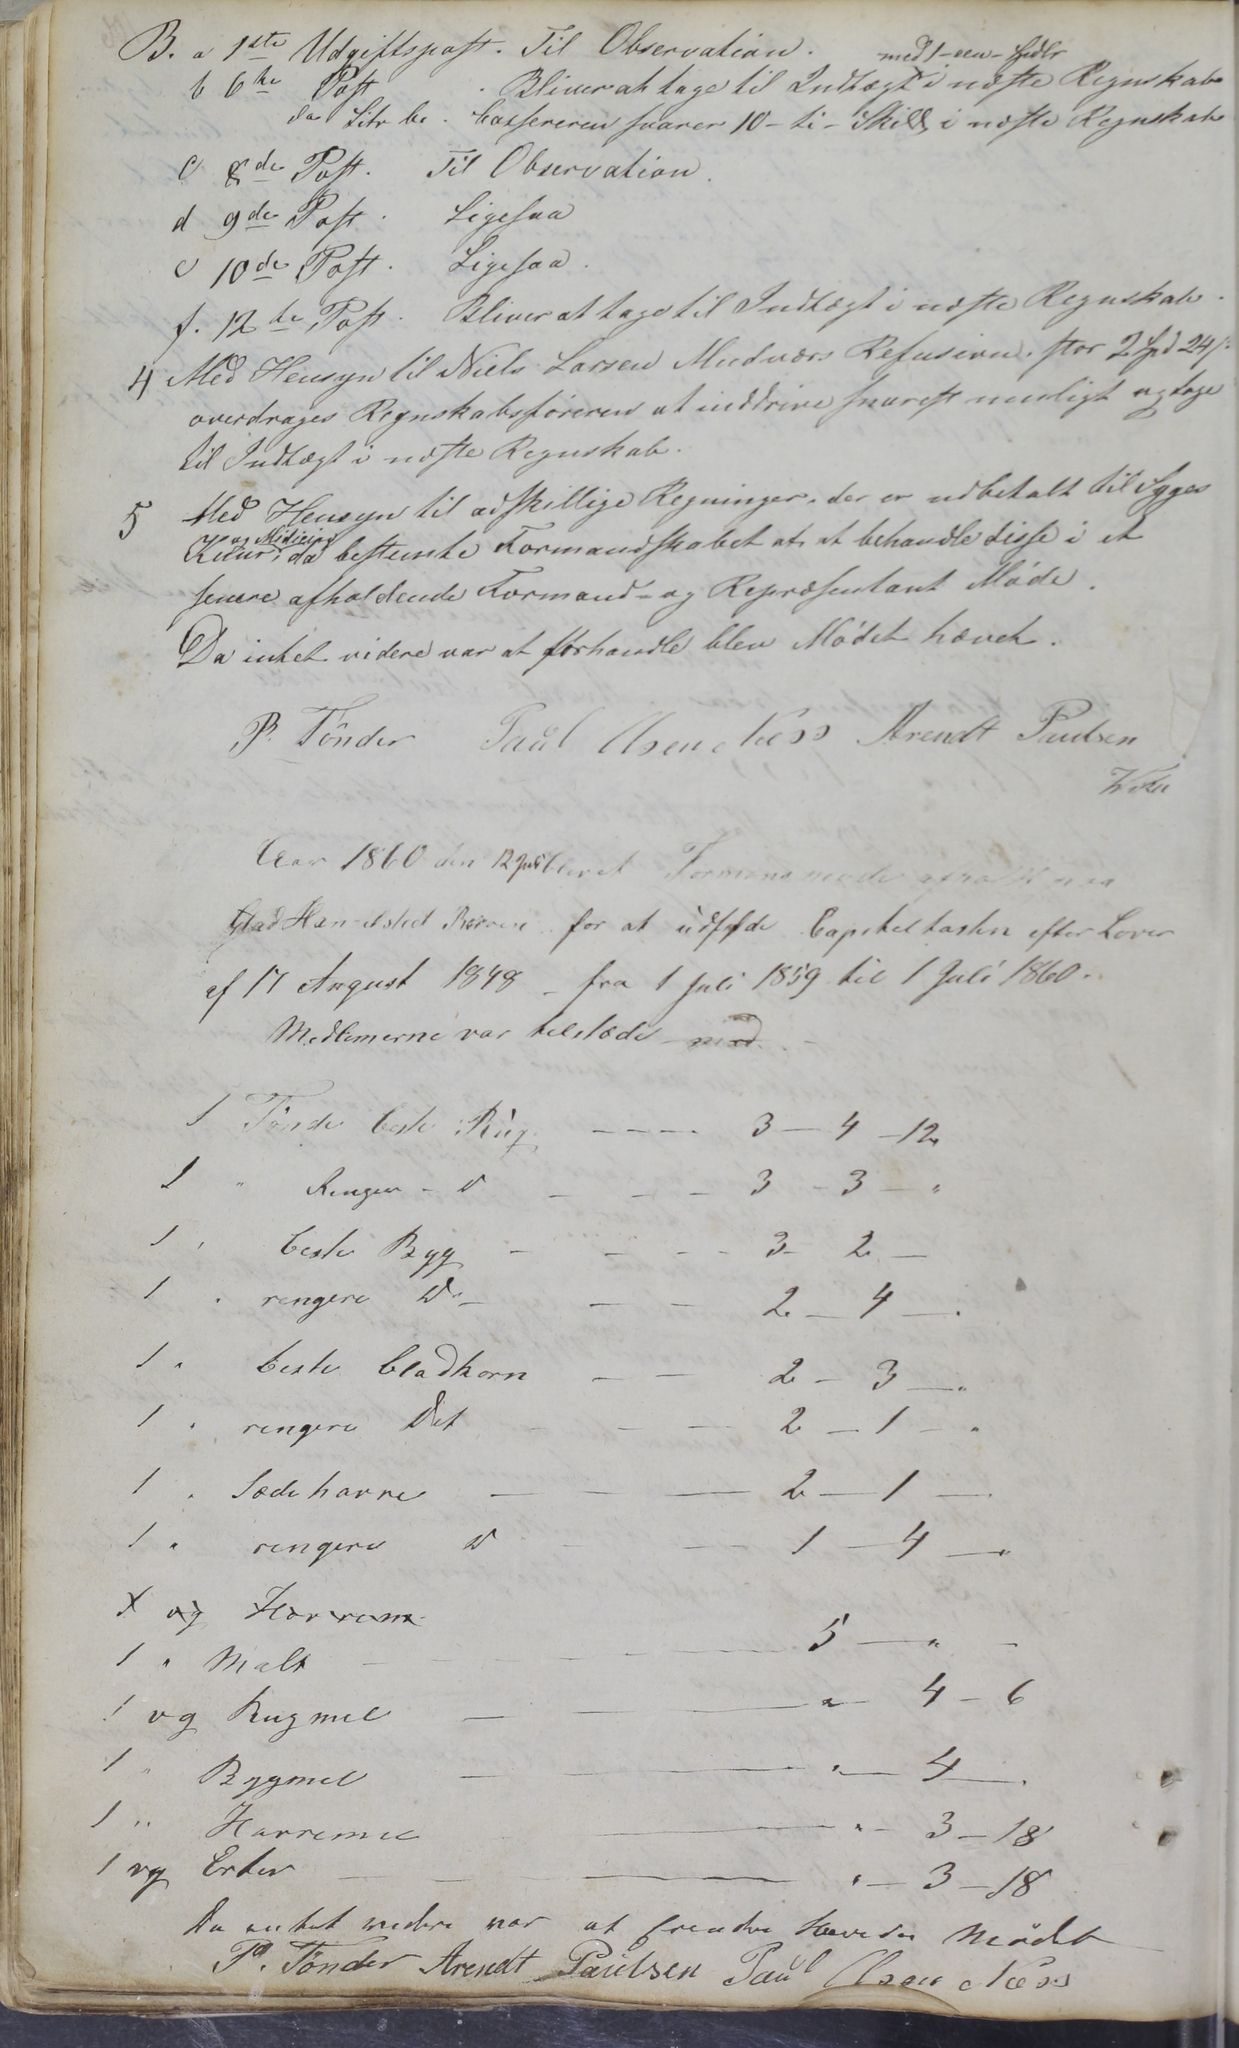 B. a 1ste Udgiftspost. Til Observation.
med 1 - een - Spdlr
b 6te Post . Bliver at tage til Indtægt i næste Regnskab
da Litr be. Cassereren svarer 10 - ti - Skill i næste Regnskab
c 8de Post. Til Observation.
d 9de Post. Ligesaa
e 10de Post. Ligesaa.
f. 12te Post. Bliver at tage til Indtægt i næste Regnskab.
4 Med Hensyn til Niels Larsen Mudværs Refusion, stor 2 Spd 24 s.
overdrages Regnskabsføreren at inddrive snarest muligt og tage
til Indtægt i næste Regnskab.
5 Med Hensyn til adskillige Regninger, der er udbetalt til Syges
og Medicin
Kuur, da bestemte Formandskabet at at behandle disse i et
senere afholdende Formand- og Repræsentant Møde.
Da intet videre var at forhandle blev Mødet hævet.
P. Tønder Paul Olsen Næss Arendt Paulsen
Aar 1860 den 12 Juli blev et Formands møde afholdt paa
Handelsted for at udfylde Capitelstaxten efter Lover
af 17 August 1848 - fra 1 Juli 1859 til 1 Juli 1860.
Medlemerne var tilstæde med.
1 Tønde beste Rug - - - - 3 - 4 - 12
1 " Ringer - D - - - 3 - 3 - "
1 " beste Byg - - - - 3 - 2 -
1 " rengere D - - - 2 - 4 -
1 " beste Bladkorn - - 2 - 3 - "
1 " rengere Det - - - 2 - 1 - "
1 " Sædehavre - - - 2 - 1 -
1 " rengere D - - 1 - 4 - "
1 vg Havrem
1 " Malt - - - - 5 - " -
1 vg Rugmel - - - " - 4 - 6
1 " Bygmel - - - " - 4 - .
1 " Havremel - " - 3 - 18
1 vg Erter - - - " - 3 - 18
Da intet videre var at hævedes Mødet
P. Tønder Arendt Paulsen Paul Olsen Næss